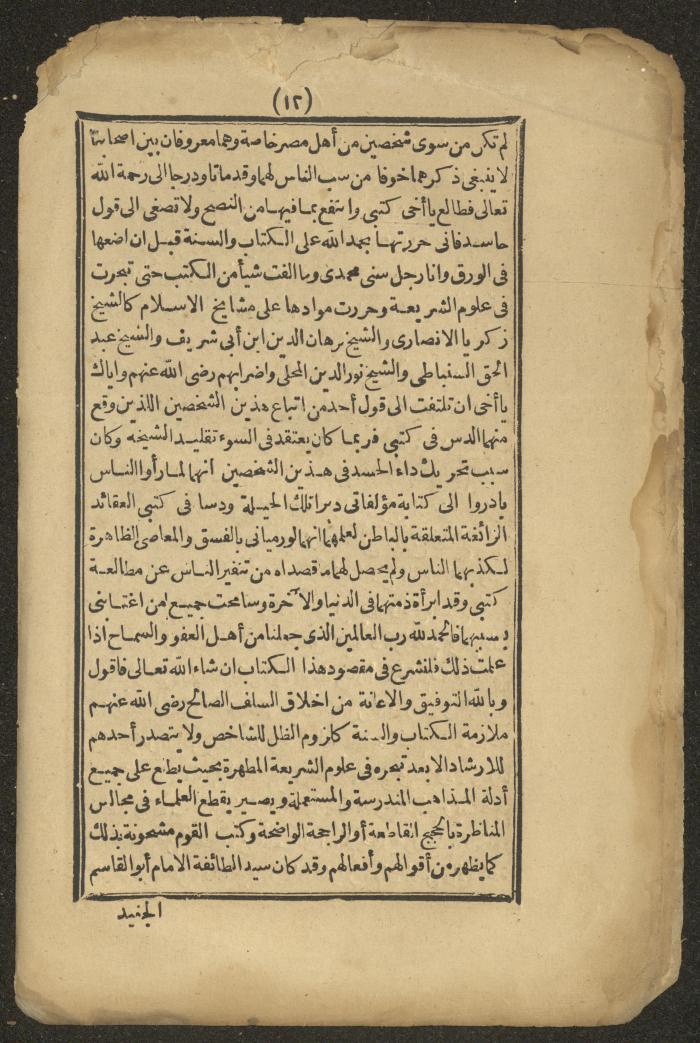 (١٢)
لم تكن من سوى شخصين من أهل مصر خاصة وهما معروفان بين اصحابنا
لا ينبغى ذكرهما خوفا من سب الناس لهما وقد ماتا ودرجا الى رحمة الله
تعالى فطالع يا أخى كتبى وانتفع بما فيها من النصح ولا تصغى الى قول
حاسد فانى حررتها بحمد الله على الكتاب والسنة قبل ان اضعها
فى الورق وانا رجل سنى محمدى وما الفت شيأ من الكتب حتى تبحرت
فى علوم الشريعة وحررت موادها على مشايخ الاسلام كالشيخ
زكريا الانصارى والشيخ برهان الدين ابن أبى شريف والشيخ عبد
الحق السنباطى والشيخ نور الدين المحلى واضرابهم رضى الله عنهم واياك
يا أخى ان تلتفت الى قول أحد من اتباع هذين الشخصين اللذين وقع
منهما الدس فى كتبى فربما كان يعتقد فى السوء تقليد الشيخه وكان
سبب تحريك داء الحسد فى هذين الشخصين انهما لما رأوا الناس
بادروا الى كتابة مؤلفاتى دبرا تلك الحيلة ودسا فى كتبى العقائد
الزائغة المتعلقة بالباطن لعلمهما انهما لو رميانى بالفسق والمعاصى الظاهرة
لكذبهما الناس ولم يحصل لهما ما قصداه من تنفير الناس عن مطالعة
كتبى وقد ابرأة ذمتهما فى الدنيا والآخرة وسامحت جميع من اغتابنى
بسببهما فالحمد لله رب العالمين الذى جعلنا من أهل العفو والسماح اذا
علمت ذلك فلنشرع فى مقصود هذا الكتاب ان شاء الله تعالى فاقول
وبالله التوفيق والاعانة من اخلاق السلف الصالح رضى الله عنهم
ملازمة الكتاب والسنة كلزوم الظل للشاخص ولا يتصدر أحدهم
للارشاد الا بعد تبحره فى علوم الشريعة المطهرة بحيث يطلع على جميع
أدلة المذاهب المندرسة والمستعملة ويصير يقطع العلماء فى مجالس
المناظرة بالحجج القاطعة أو الراجحة الواضحة وكتب القوم مشحونة بذلك
كما يظهر من أقوالهم وأفعالهم وقد كان سيد الطائفة الامام أبو القاسم
الجنيد